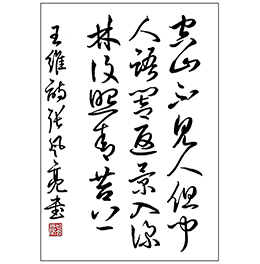 空山不見人但聞
人語響返景入深
林復照青苔上
王維詩張風亮書